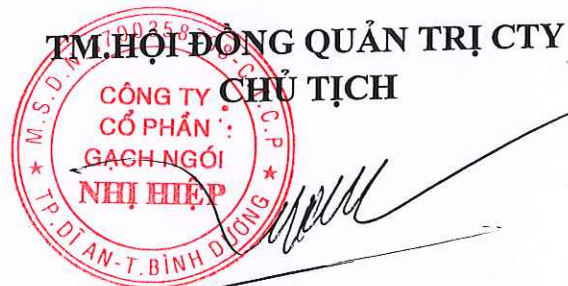 TM.HỘI ĐỒNG QUẢN TRỊ CTY
CHỦ TỊCH
CÔNG TY
CỔ PHẦN
GẠCH NGÓI
NHỊ HIỆP
TP.DĨ AN-T.BÌNH DƯƠNG